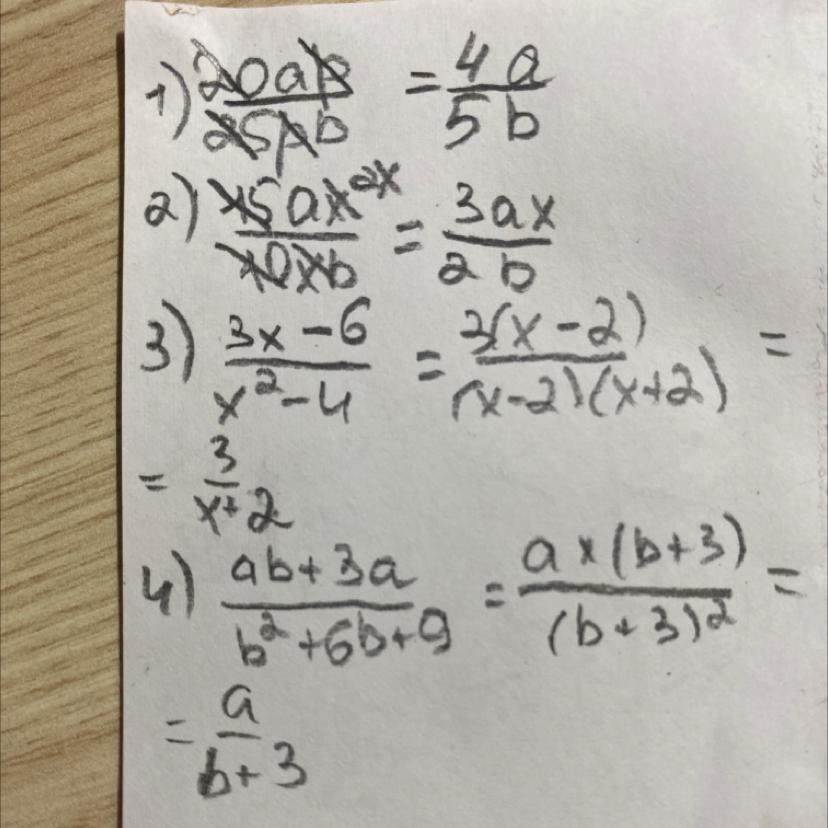 1) 20ap/25pb = 4a/5b
2) 15ax^2x/10xb = 3ax/2b
3) 3x-6/x²-4 = 3(x-2)/(x-2)(x+2) =
= 3/x+2
4) ab+3a/b²+6b+9 = a×(b+3)/(b+3)² =
= a/b+3